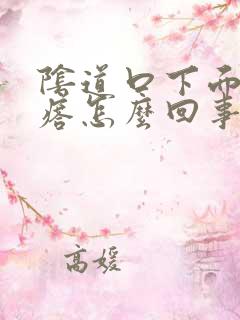 陰道口下面
痞怎麼回事
高媛